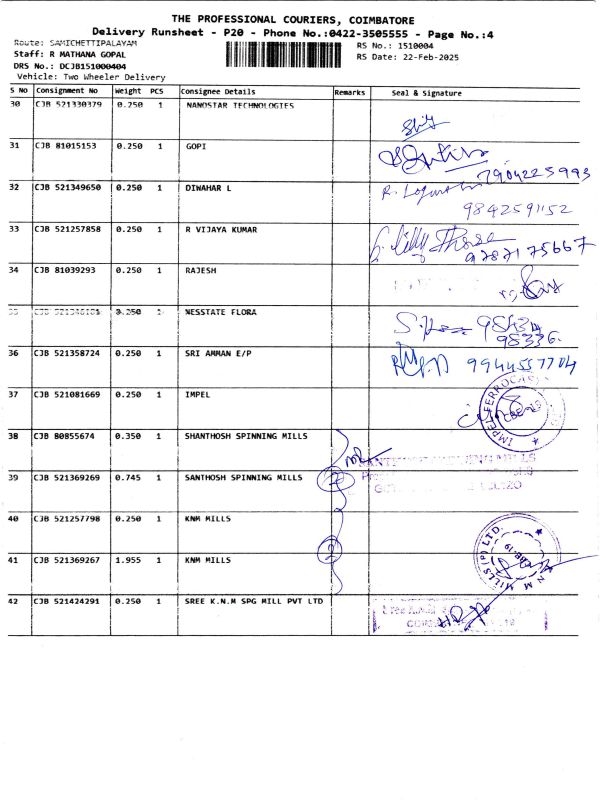 THE PROFESSIONAL COURIERS, COIMBATORE
Delivery Runsheet - P20 - Phone No.:0422-3505555 - Page No.:4
Route: SAMICHETTIPALAYAM
Staff: R MATHANA GOPAL
DRS No.: DCJB151000404
Vehicle: Two Wheeler Delivery
RS No.: 1510004
RS Date: 22-Feb-2025
S No Consignment No Weight PCS Consignee Details Remarks Seal & Signature
30 CJB 521330379 0.250 1 NANOSTAR TECHNOLOGIES
31 CJB 81015153 0.250 1 GOPI
7904225993
32 CJB 521349650 0.250 1 DIWAHAR L
9842591152
33 CJB 521257858 0.250 1 R VIJAYA KUMAR
9787175667
34 CJB 81039293 0.250 1 RAJESH
35 0.250 1 NESSTATE FLORA
98336
36 CJB 521358724 0.250 1 SRI AMMAN E/P
9944557704
37 CJB 521081669 0.250 1 IMPEL
IMPEL FERROCAST
38 CJB 80855674 0.350 1 SHANTHOSH SPINNING MILLS
39 CJB 521369269 0.745 1 SANTHOSH SPINNING MILLS
2
40 CJB 521257798 0.250 1 KNM MILLS
41 CJB 521369267 1.955 1 KNM MILLS
2
N M MILLS(P) LTD.
CBE-19
42 CJB 521424291 0.250 1 SREE K.N.M SPG MILL PVT LTD